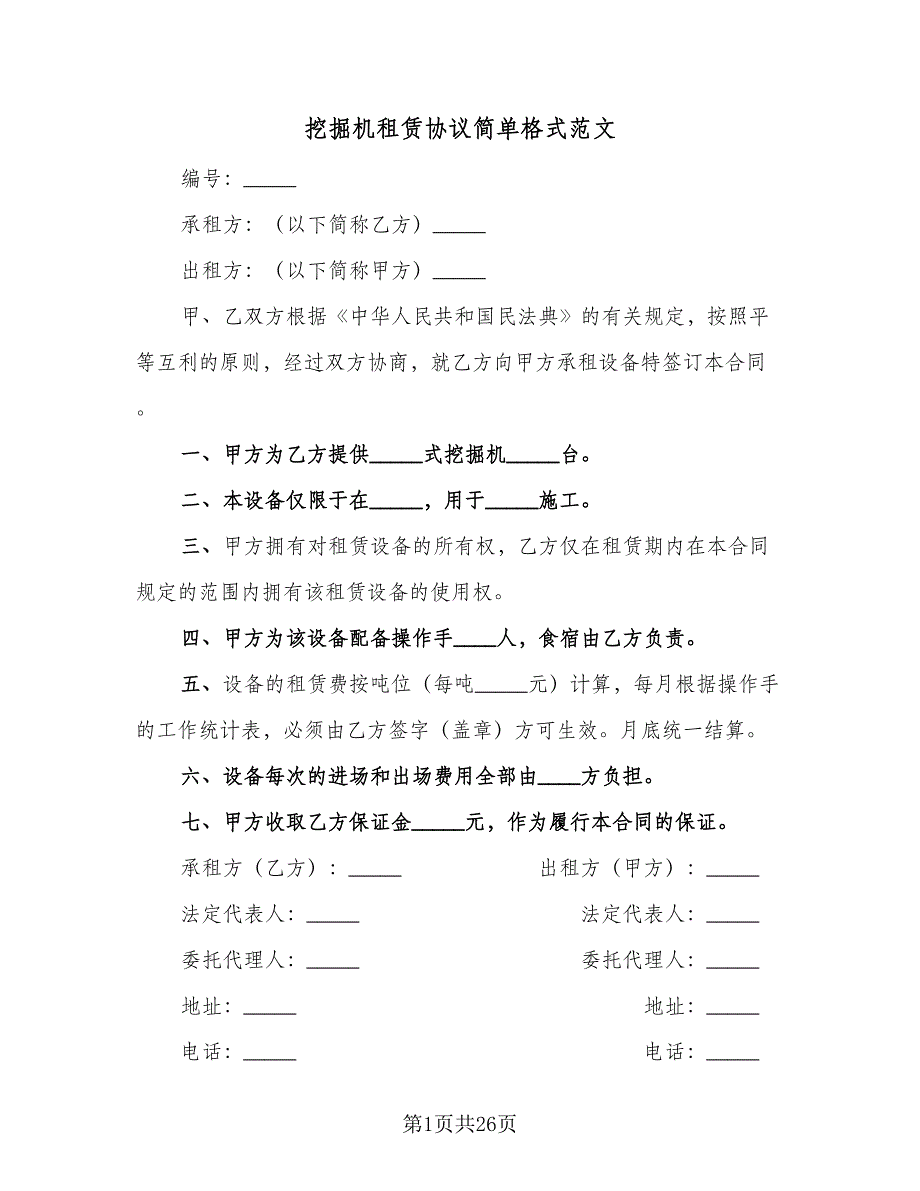 挖掘机租赁协议简单格式范文
编号：_____
承租方：（以下简称乙方）_____
出租方：（以下简称甲方）_____
甲、乙双方根据《中华人民共和国民法典》的有关规定，按照平
等互利的原则，经过双方协商，就乙方向甲方承租设备特签订本合同
。
一、甲方为乙方提供_____式挖掘机_____台。
二、本设备仅限于在_____，用于_____施工。
三、甲方拥有对租赁设备的所有权，乙方仅在租赁期内在本合同
规定的范围内拥有该租赁设备的使用权。
四、甲方为该设备配备操作手____人，食宿由乙方负责。
五、设备的租赁费按吨位（每吨_____元）计算，每月根据操作手
的工作统计表，必须由乙方签字（盖章）方可生效。月底统一结算。
六、设备每次的进场和出场费用全部由____方负担。
七、甲方收取乙方保证金_____元，作为履行本合同的保证。
承租方（乙方）：_____ 出租方（甲方）：_____
法定代表人：_____ 法定代表人：_____
委托代理人：_____ 委托代理人：_____
地址：_____ 地址：_____
电话：_____ 电话：_____
第1页共26页